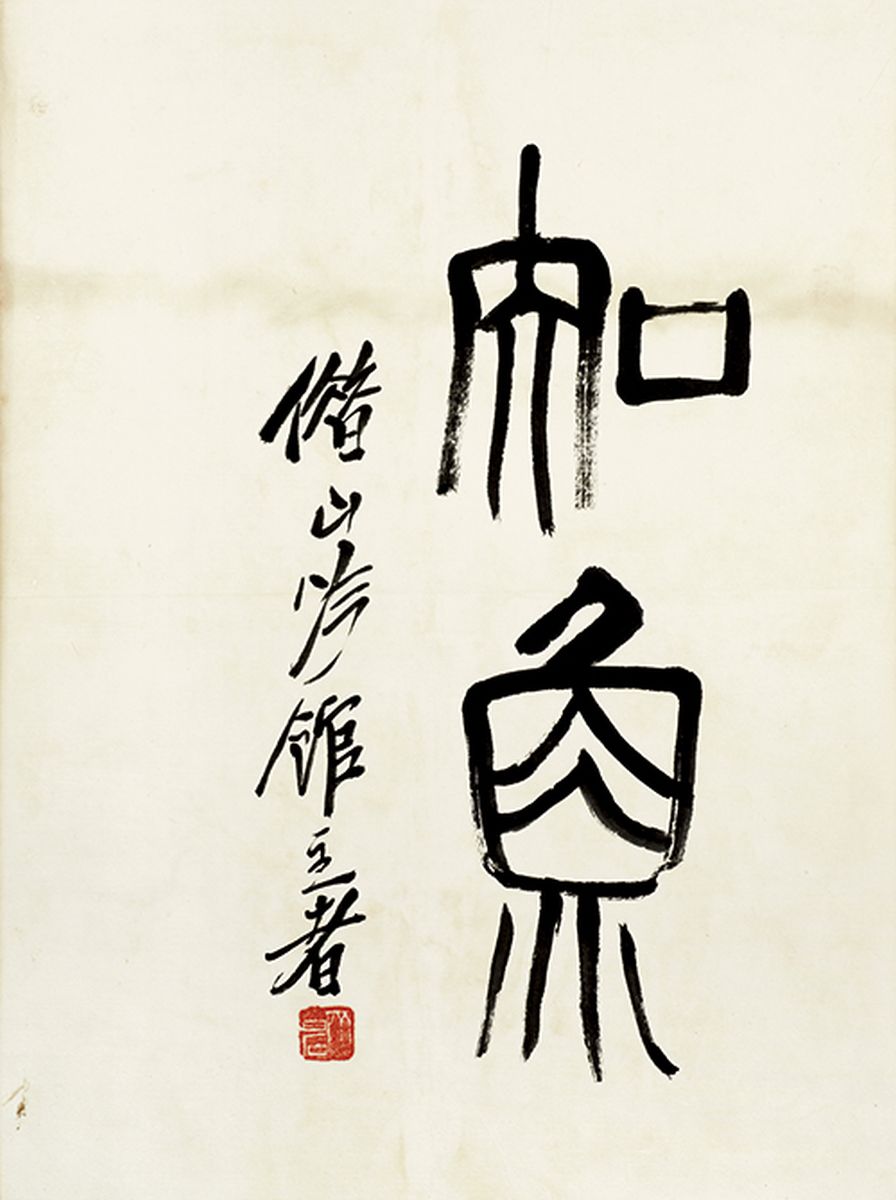 加魚
借山吟館主者